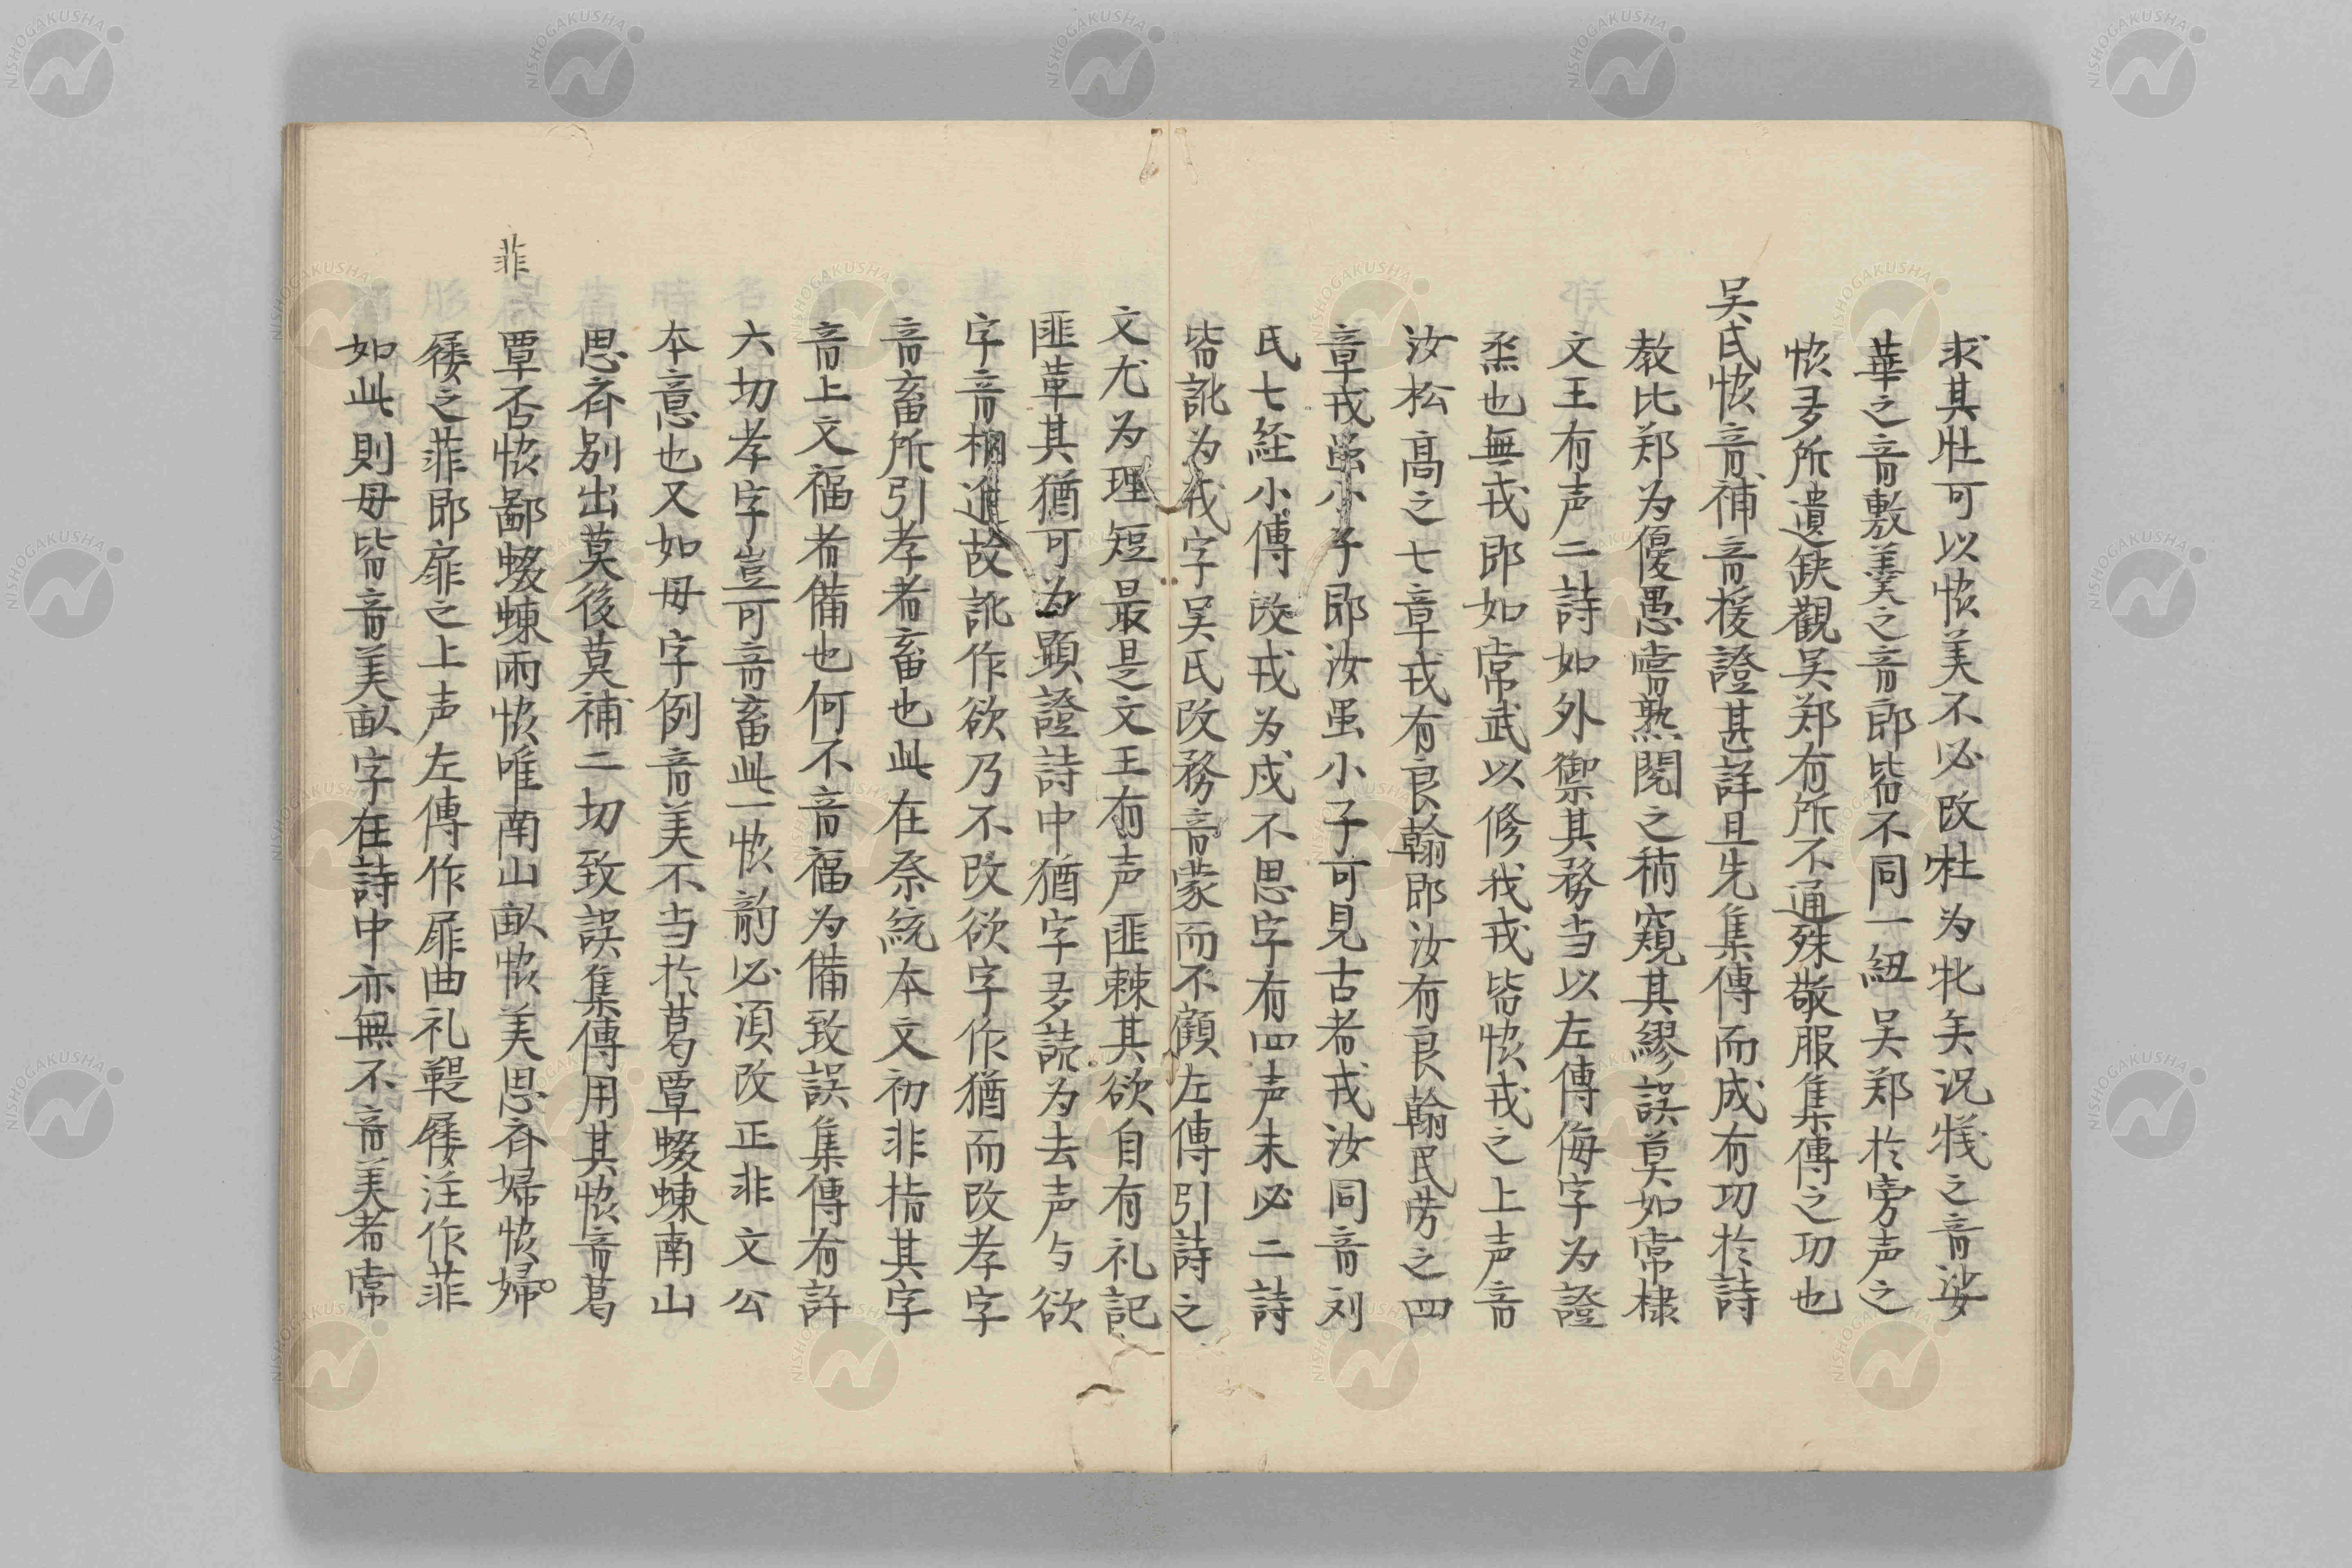 求其牡可以恊美不必改牡为牝矣況犠之音娑
華之音敷羹之音郎皆不同一紐吴郑於旁声之
恊多所遺缺觀吴郑有所不通殊敬服集傳之功也
吴氏恊音補音援證甚詳且先集傳而成有功於詩
教比郑为優愚嘗熟閱之稍窺其繆誤莫如常棣
文王有声二詩如外禦其務当以左傳侮字为證
烝也無戎即如常武以修我戎皆恊戎之上声音
汝松高之七章戎有良翰即汝有良翰民劳之四
章戎虽小子即汝虽小子可見古者戎汝同音刘
氏七経小傳改戎为戍不思字有四声未必二詩
皆訛为戎字吴氏改務音蒙而不顧左傳引詩之
文尤为理短最是文王有声匪棘其欲自有礼記
匪革其猶可为顕證詩中猶字多読为去声与欲
字音相進故訛作欲乃不改欲字作猶而改孝字
音畜所引孝者畜也此在祭統本文初非指其字
音上文福者備也何不音福为備致誤集傳有許
六切孝字豈可音畜此一恊韵必須改正非文公
本意也又如母字例音美不当於葛覃螮蝀南山
思齐別出莫後莫補二切致誤集傳用其恊音葛
覃否恊鄙螮蝀雨恊唯南山畝恊美思齐婦恊婦
菲
屨之菲即扉之上声左傳作扉曲礼鞮屨注作菲
如此則母皆音美畝字在詩中亦無不音美者常